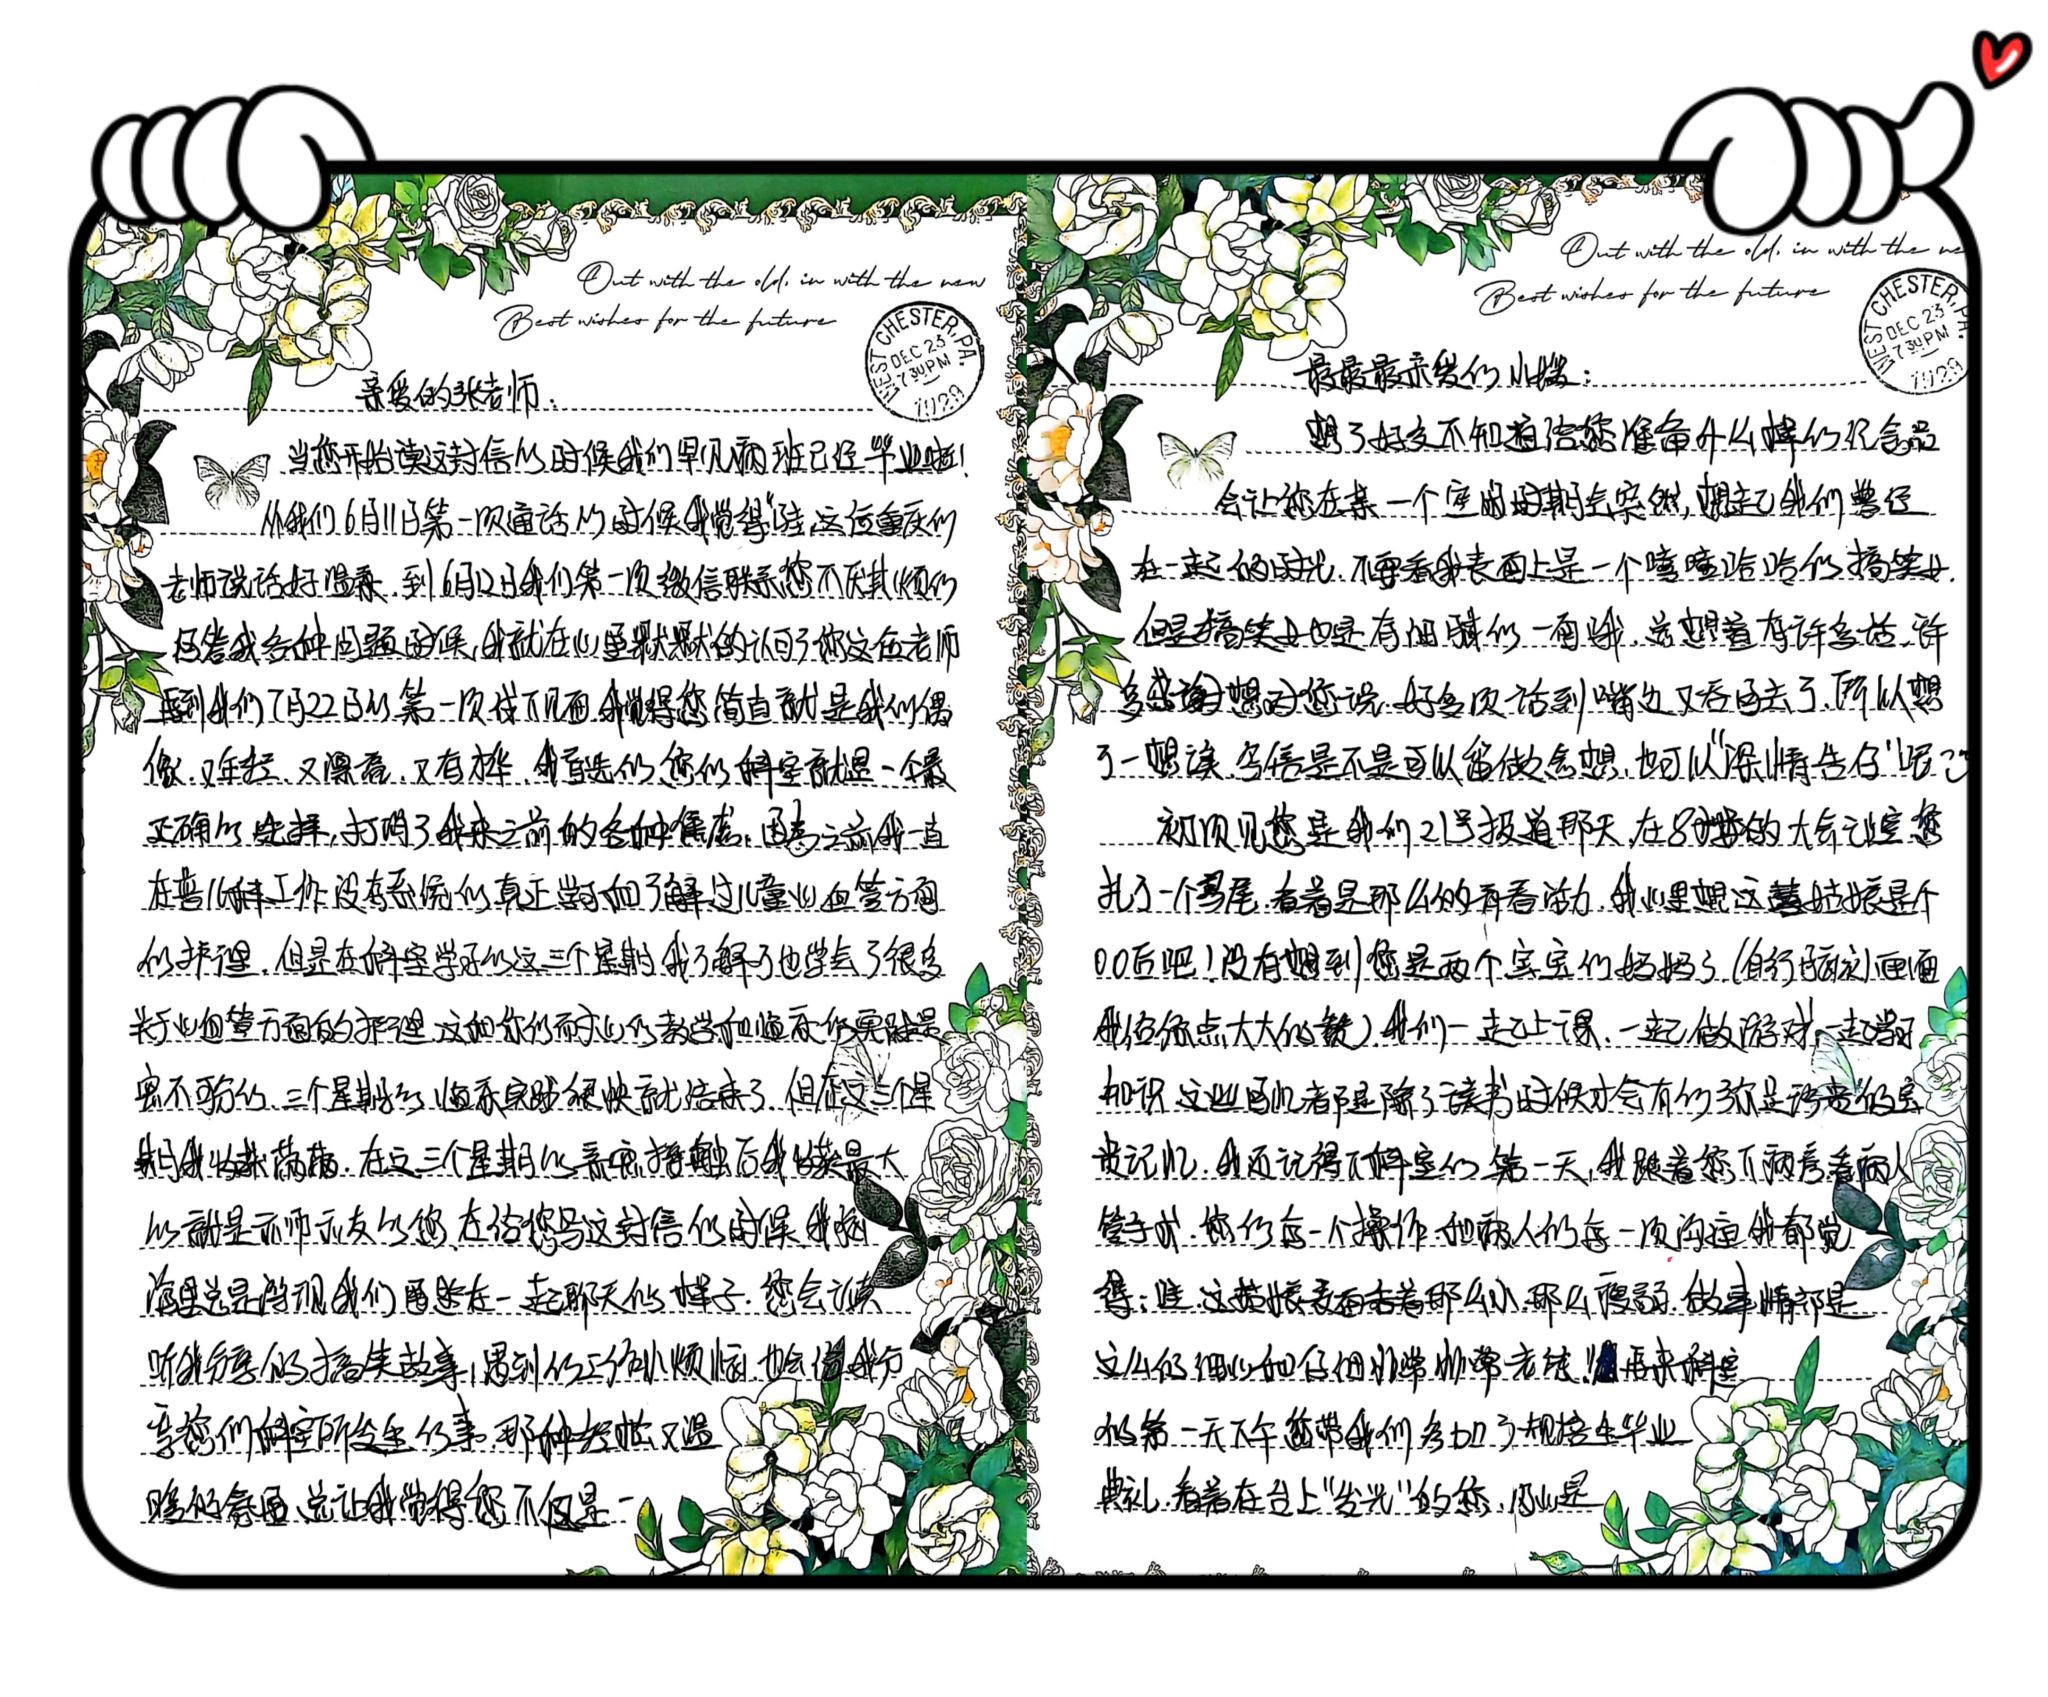 Out with the old, in with the new
Best wishes for the future
WEST CHESTER, PA.
DEC 23
7 30 PM
1929
亲爱的张老师:
当您开始读这封信的时候我们罕见病班已经毕业啦!
从我们6月11日第一次通话的时候我觉得"哇这位重庆的
老师说话好温柔.到6月12日我们第一次微信联系您不厌其烦的
回答我各种问题的时候,我就在心里默默的认可了你这位老师
到我们7月22日的第一次线下见面我觉得您简直就是我们偶
像.又年轻.又漂亮.又有才华.我首选的您的科室就是一个最
正确的选择,打消了我来之前的各种焦虑.因为之前我一直
在普儿科工作没有系统的真正学习和了解过儿童心血管方面
的护理.但是在科室学习的这三个星期我了解了也学会了很多
关于心血管方面的护理.这和你们耐心的教学和临床的实践是
密不可分的.三个星期的临床实践很快就结束了.但在这三个星
期我收获满满.在这三个星期的亲密接触后我收获最大
的就是亦师亦友的您.在给您写这封信的时候.我脑
海里总是浮现我们围坐在一起聊天的样子.您会认真
听我分享的搞笑故事,遇到的工作小烦恼.也会借我分
享您们科室所发生的事.那种轻松又温
暖的氛围.总让我觉得您不仅是一
Out with the old, in with the ne
Best wishes for the future
WEST CHESTER, PA.
DEC 23
7 30 PM
1929
最最最亲爱的小媛:
想了好久不知道给您准备什么样的纪念品
会让您在某一个空闲的时期会突然,想起我们曾经
在一起的时光.不要看我表面上是一个嘻嘻哈哈的搞笑女.
但是搞笑女也是有细腻的一面哦.总想着有许多话.许
多感谢想对您说.好多次话到嘴边又吞回去了.所以想
了一想诶.写信是不是可以留做念想.也可以"深情告白"呢
初次见您是我们21号报道那天.在8楼的大会议室您
扎了一个马尾.看着是那么的青春活力.我心里想这姑娘是个
00后吧!没有想到您是两个宝宝的妈妈了.(自行脑补画面
我给你点大大的赞).我们一起上课.一起做游戏.一起学习
知识.这些回忆都是除了读书的时候才会有的弥足珍贵的宝
贵记忆.我还记得下科室的第一天,我跟着您下病房看病人
管手术.您们每一个操作和病人的每一次沟通我都觉
得:哇.这姑娘表面看着那么小.那么瘦弱.做事情却是
这么的细心和仔细非常非常老练.再来科室
的第一天下午您带我们参加了规培生毕业
典礼.看着在台上"发光"的您.内心是